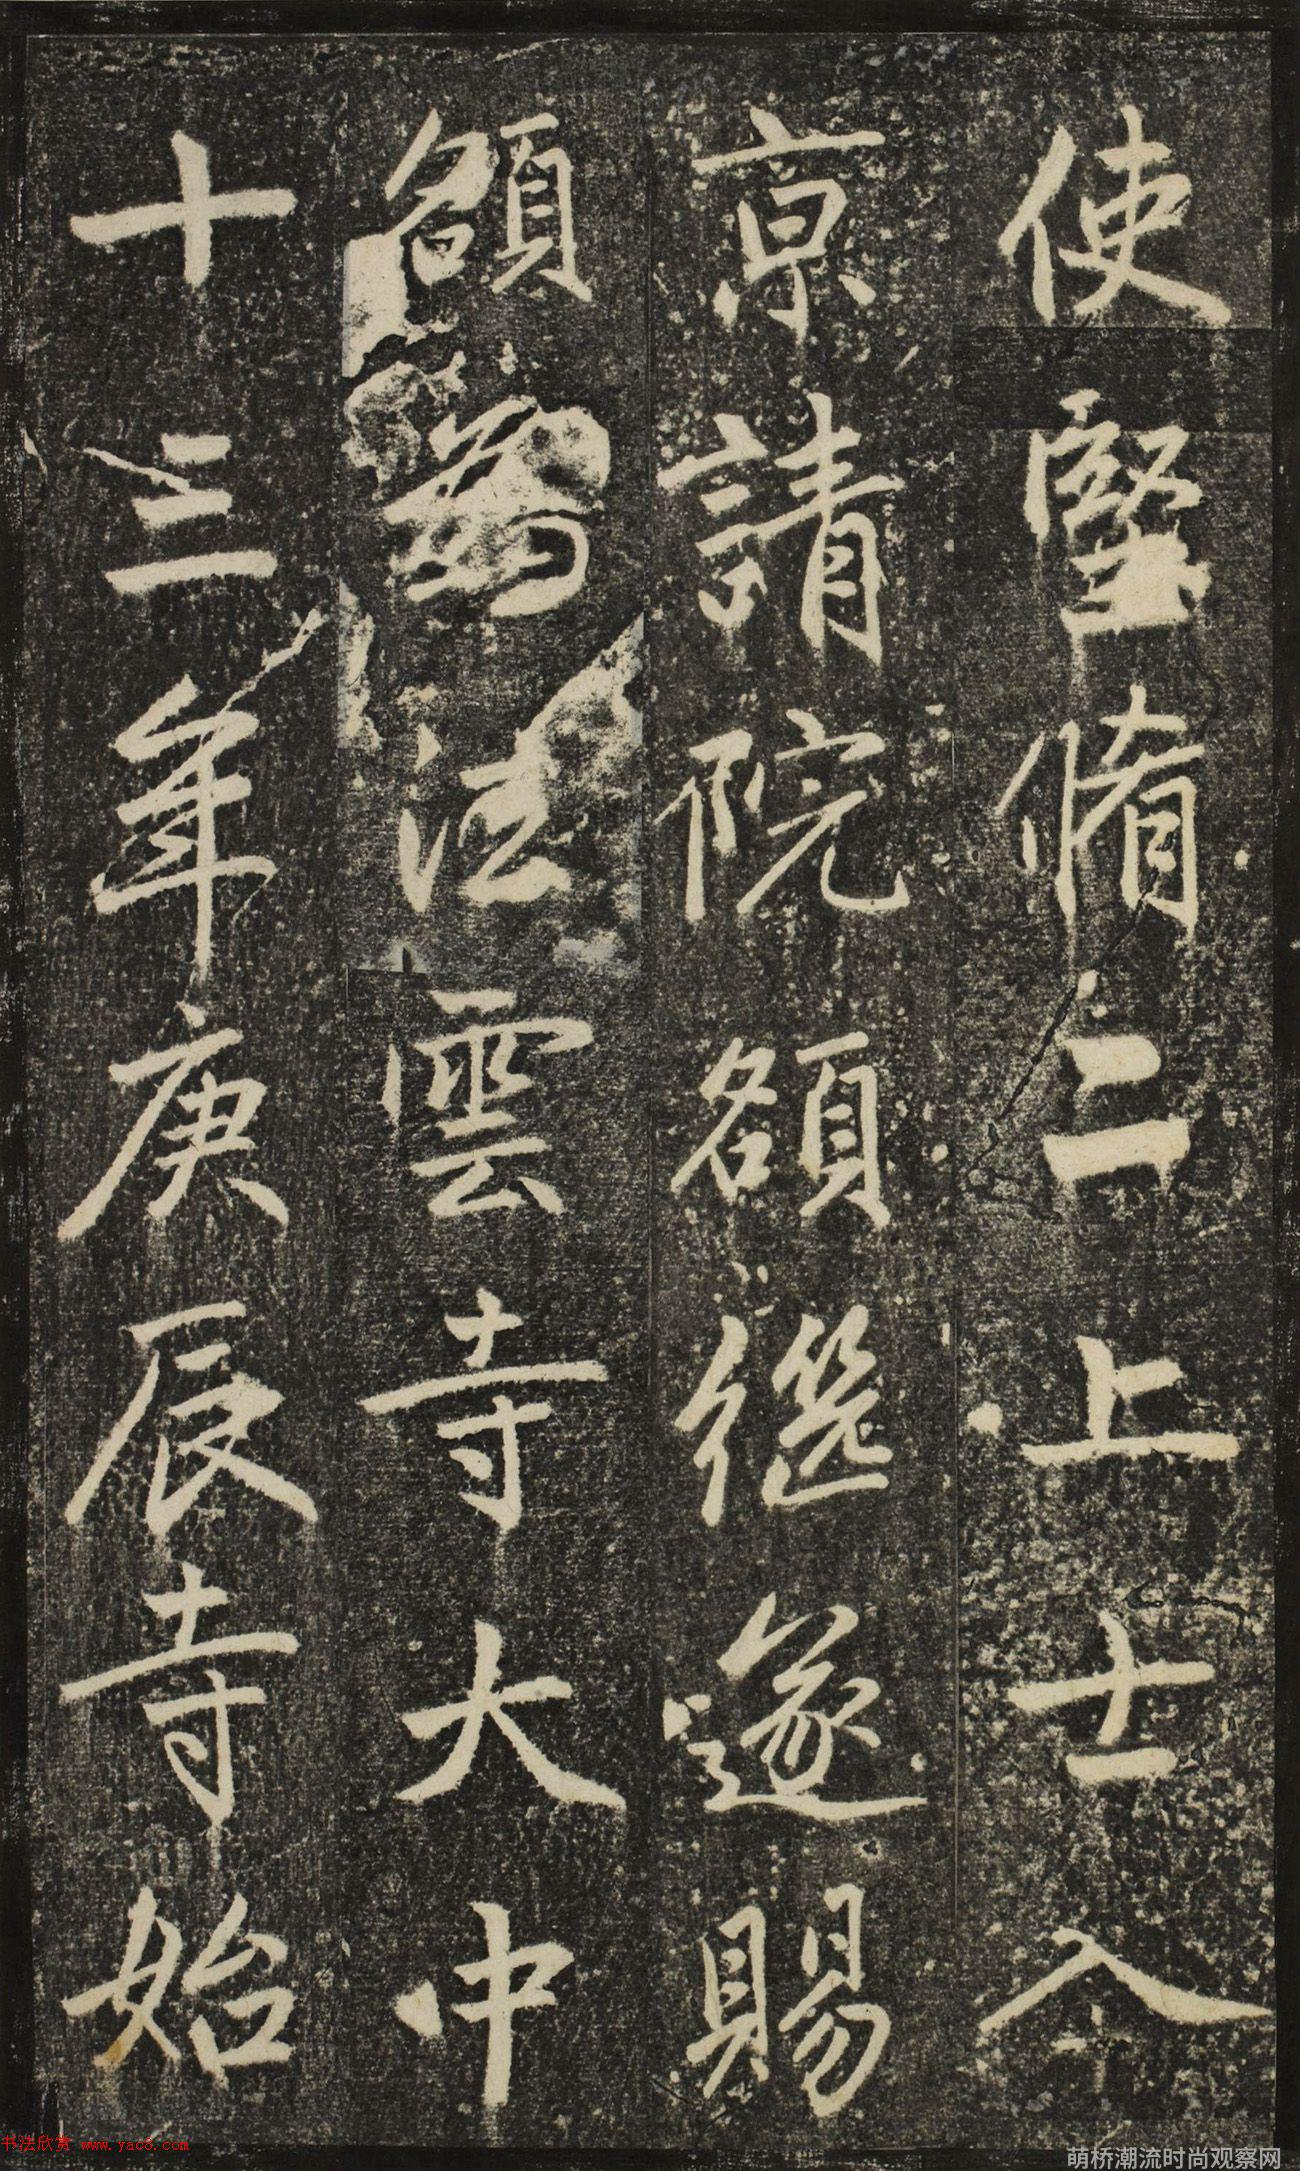 使堅脩二上士入
京請院額繼遂賜
額為法雲寺大中
十三年庚辰寺始
书法欣赏 www.yac8.com
萌桥潮流时尚观察网